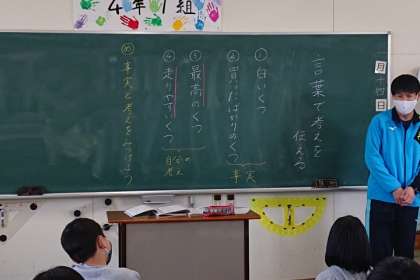 4年1組
月
言葉で考えを
伝える
① 白いくつ
② 買ったばかりのくつ
事実
③ 最高のくつ
④ 走りやすいくつ
自分の
考え
め 事実と考えをみつけよう